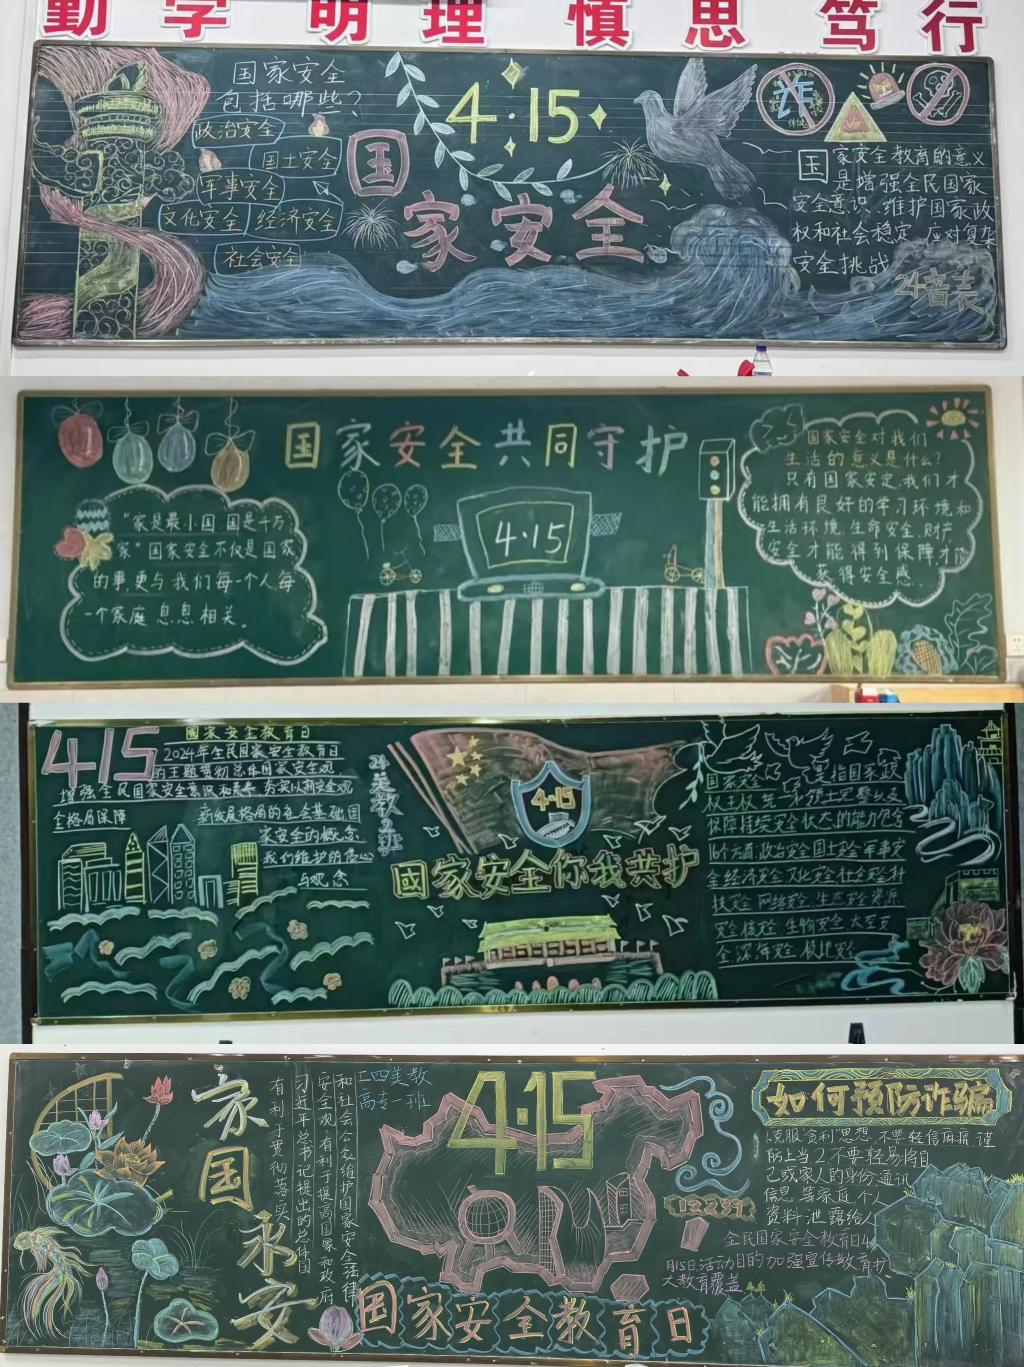 勤学 明理 慎思 笃行
国家安全
包括哪些?
政治安全
国土安全
军事安全
文化安全 经济安全
社会安全
4·15
国家安全
诈
国家安全教育的意义
是增强全民国家
安全意识、维护国家政
权和社会稳定、应对复杂
安全挑战
24音表
国家安全共同守护
"家是最小国 国是千万
家"国家安全不仅是国家
的事,更与我们每一个人每
一个家庭息息相关。
4·15
国家安全对我们
生活的意义是什么?
只有国家安定,我们才
能拥有良好的学习环境和
生活环境,生命安全、财产
安全才能得到保障才能
获得安全感。
415
國家安全教育日
2024年全民国家安全教育日
的主题贯彻总体国家安全观
增强全民国家安全意识和素养 夯实以新安全观
全格局保障
新发展格局的社会基础国
家安全的概念
我们维护的信心
与观念
24美教2班
4·15
國家安全你我共护
是指国家政
权主权统一和领土完整以及
保障持续安全状态的能力包含
16个方面,政治安全国土安全军事安
全经济安全文化安全社会安全科
技安全网络安全生态安全资源
安全核安全生物安全太空安
全深海安全极地安全
家国永安
有利于贯彻落实
习近平总书记提出的总体国
安全观 有利于提高国家和政府
和社会公众维护国家安全法律
二四美教
高专一班
4·15
国家安全教育日
12339
如何预防诈骗
1.克服贪利思想 不要轻信麻痹 谨
防上当 2.不要轻易将自
己或家人的身份 通讯
信息 等家庭 个人
资料 泄露给
全民国家安全教育日4
月15日活动目的加强宣传教育扩
大教育覆盖